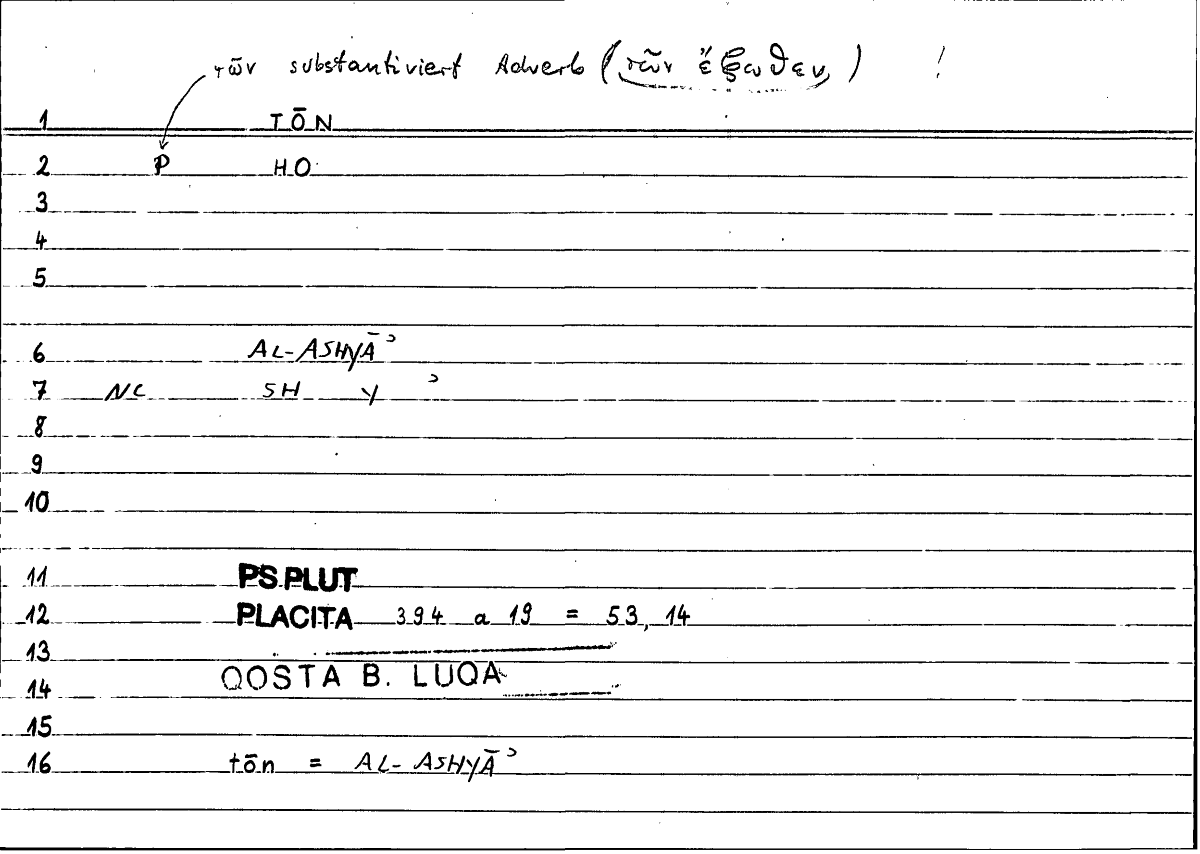 τῶν substantiviert Adverb (τῶν ἔξωθεν) !
1 TŌN
2 P HO
3
4
5
6 AL-ASHYĀʾ
7 NC SH Y ʾ
8
9
10
11 PS.PLUT
12 PLACITA 394 a 19 = 53, 14
13
14 QOSTA B. LUQA
15
16 tōn = AL-ASHYĀʾ